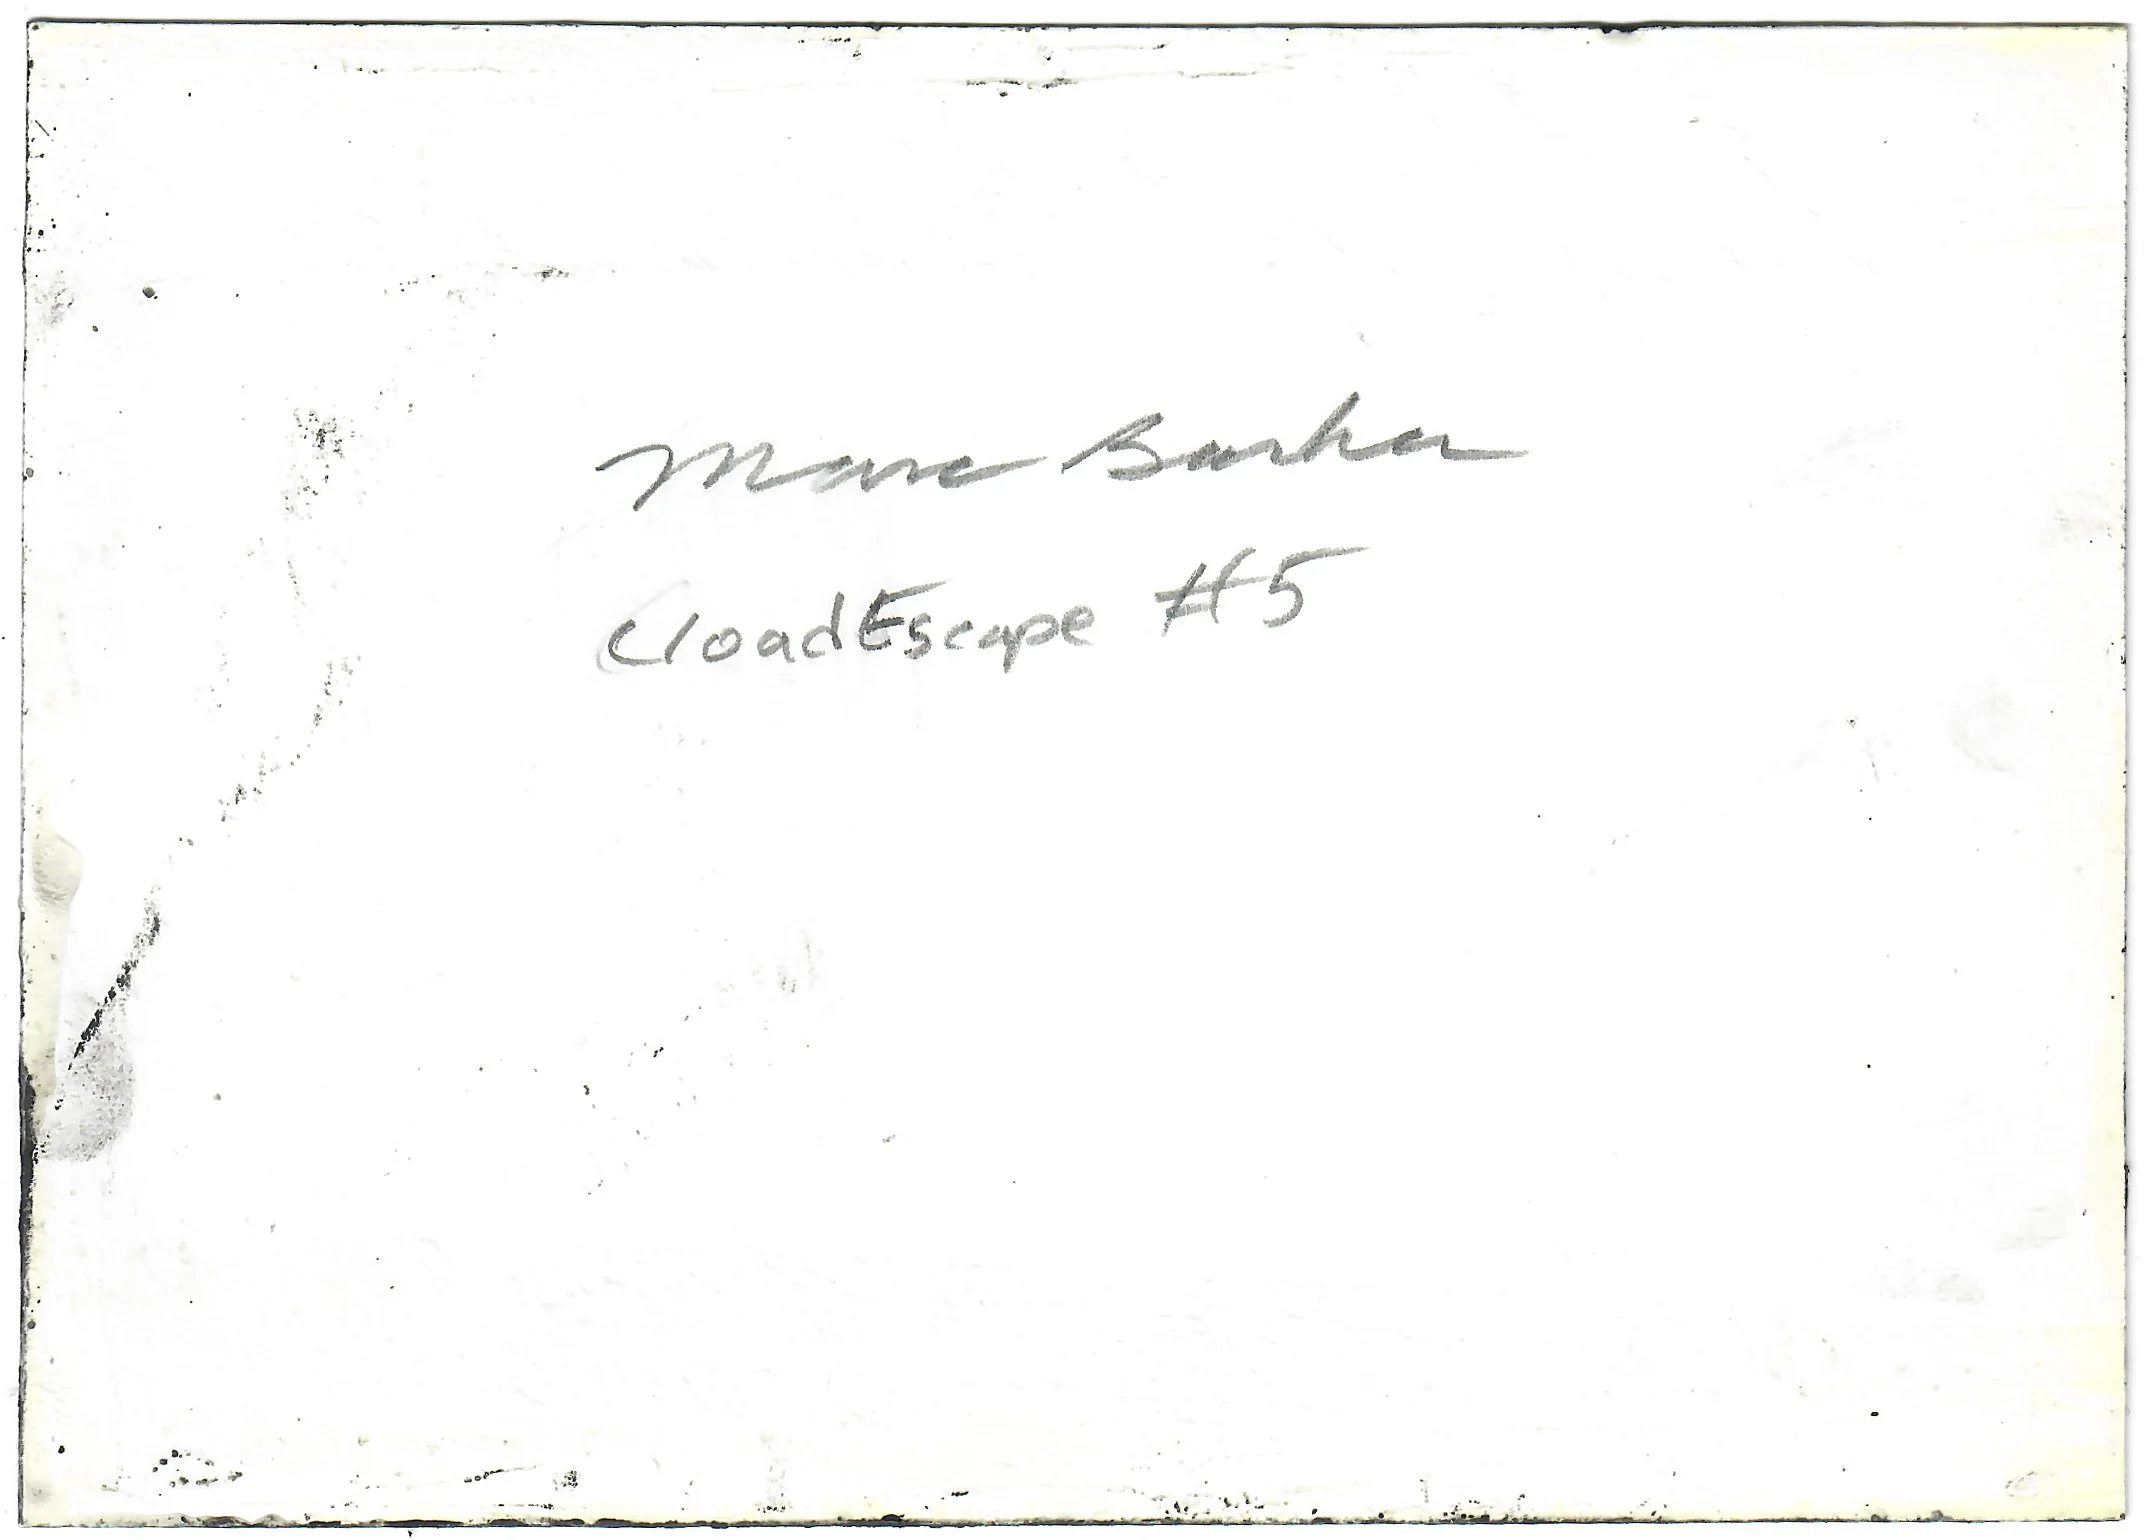 Marc Barker
CloadEscape #5